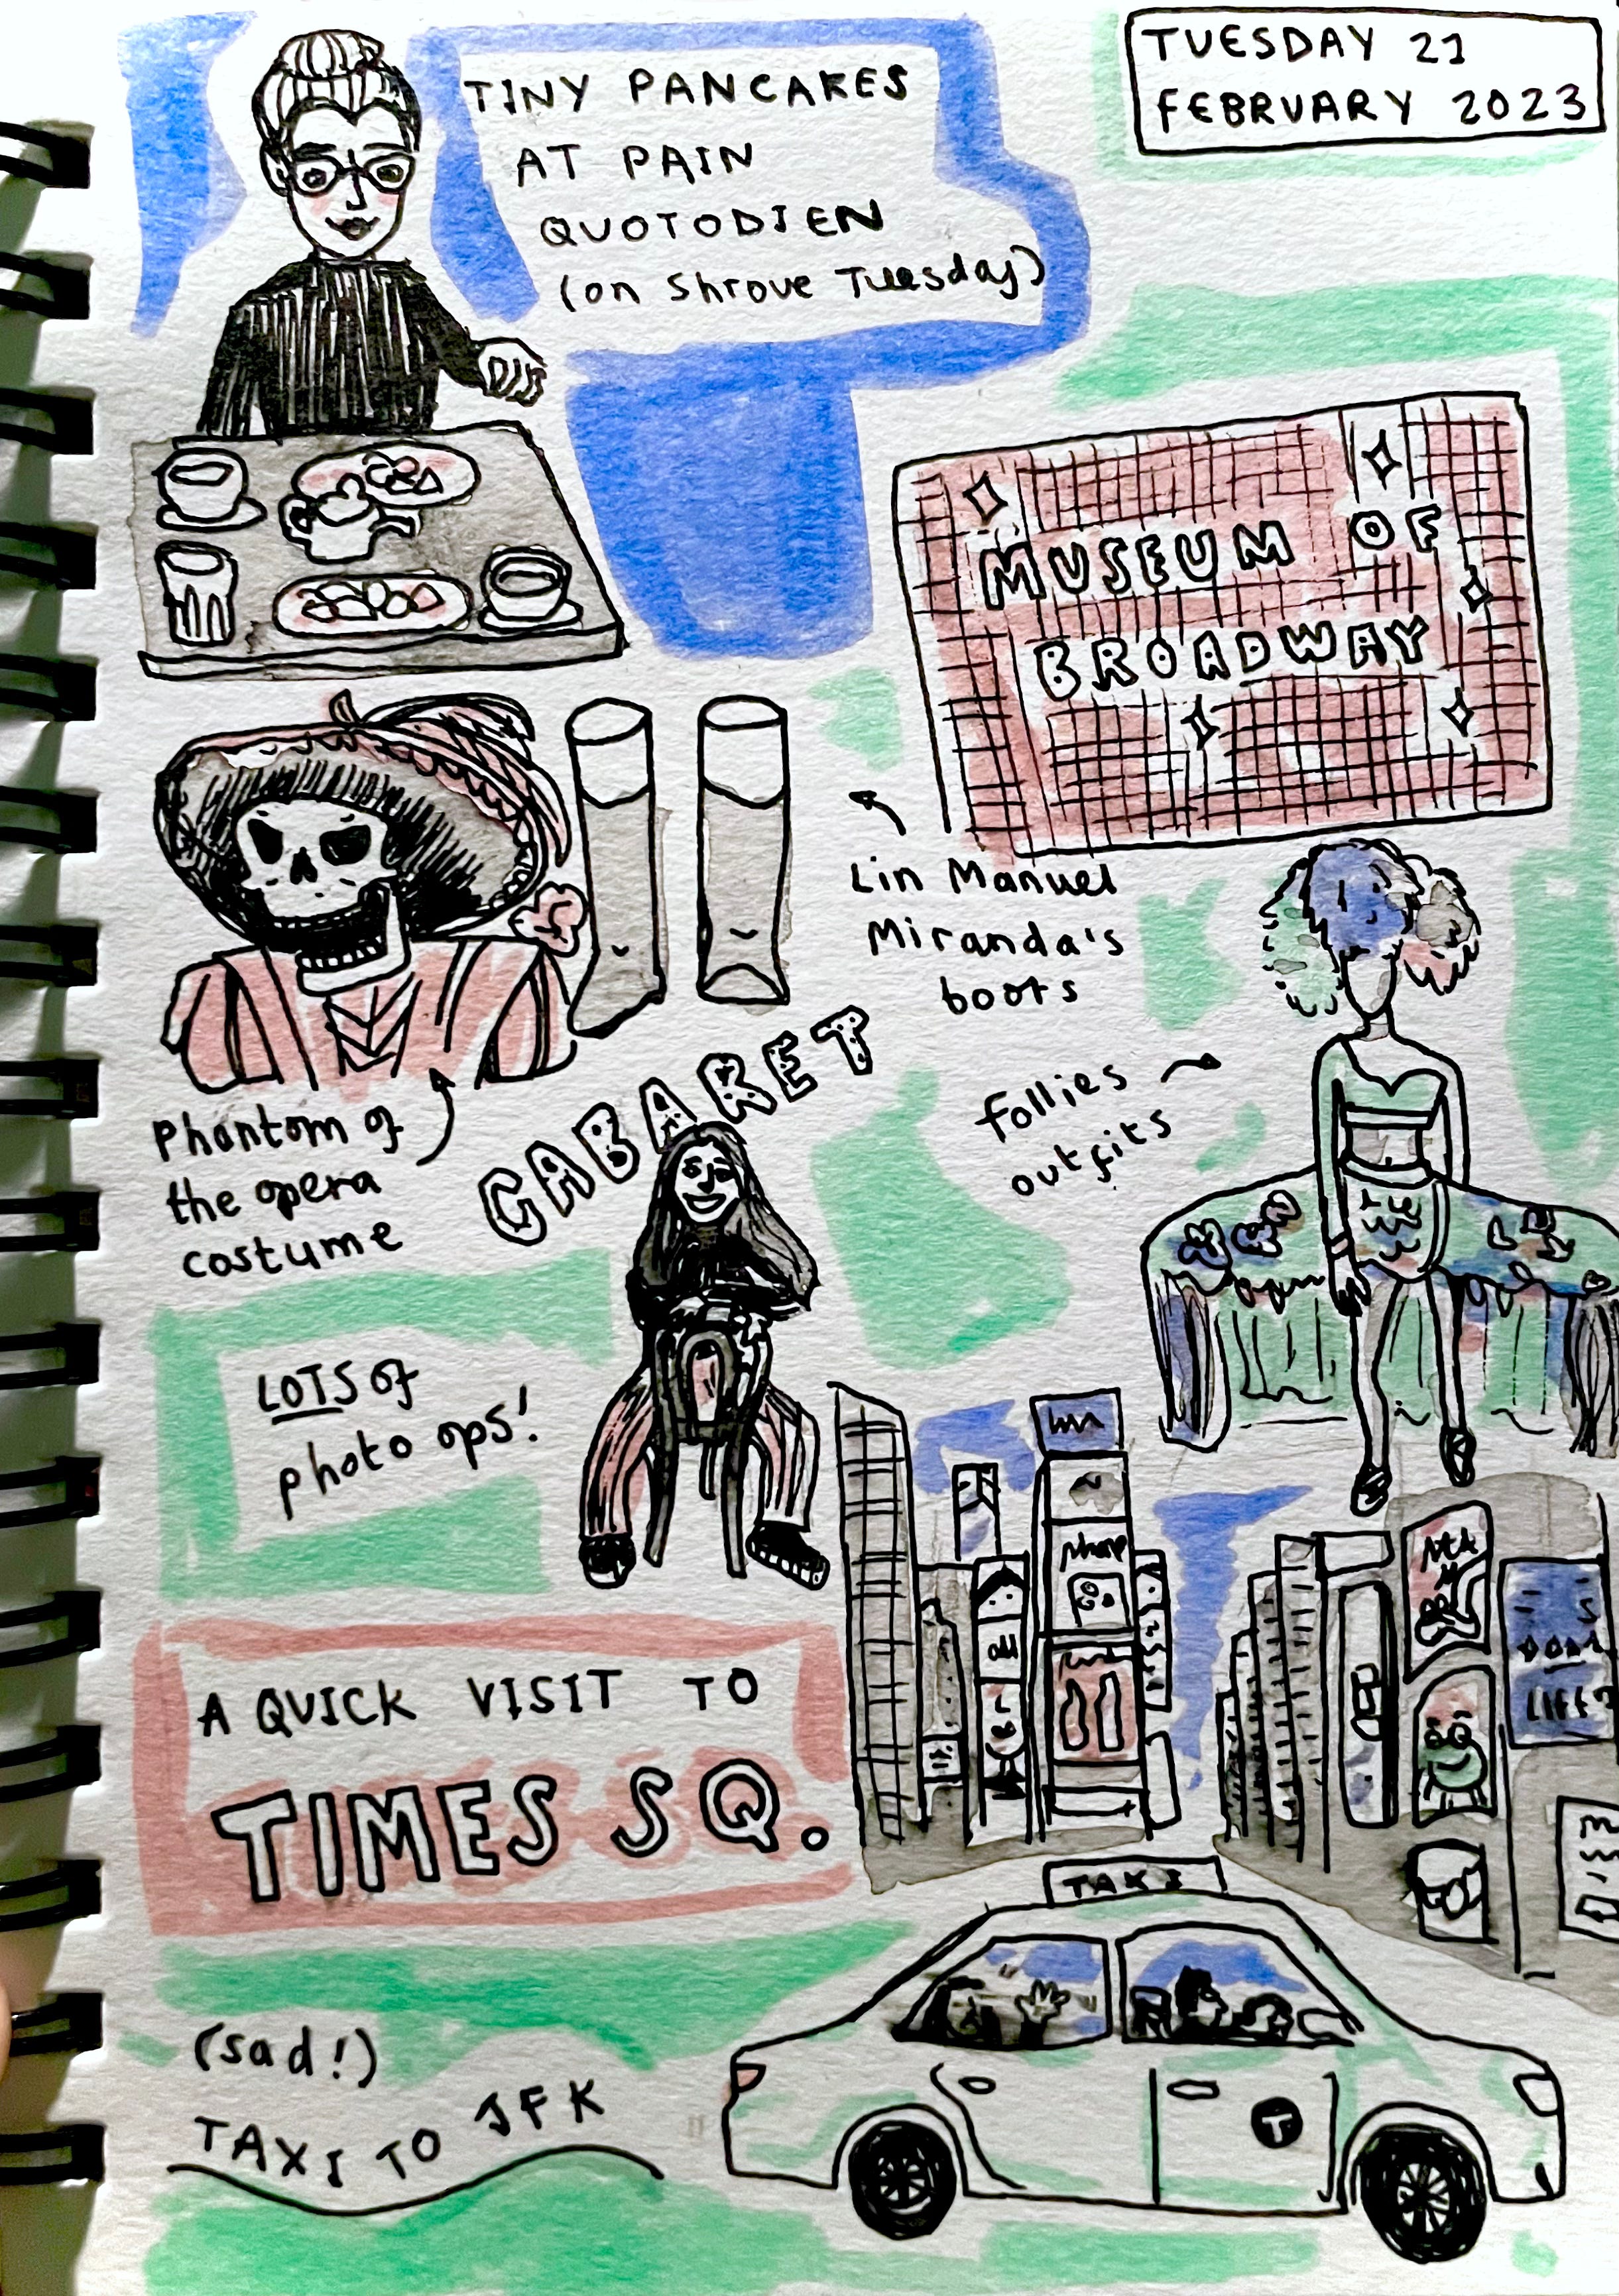 TUESDAY 21
FEBRUARY 2023
TINY PANCAKES
AT PAIN
QUOTODIEN
(on Shrove Tuesday)
MUSEUM OF
BROADWAY
Lin Manuel
Miranda's
boots
Phantom of
the opera
costume
CABARET
follies
outfits
LOTS of
photo ops!
A QUICK VISIT TO
TIMES SQ.
phone
TAXI
T
(sad!)
TAXI TO JFK